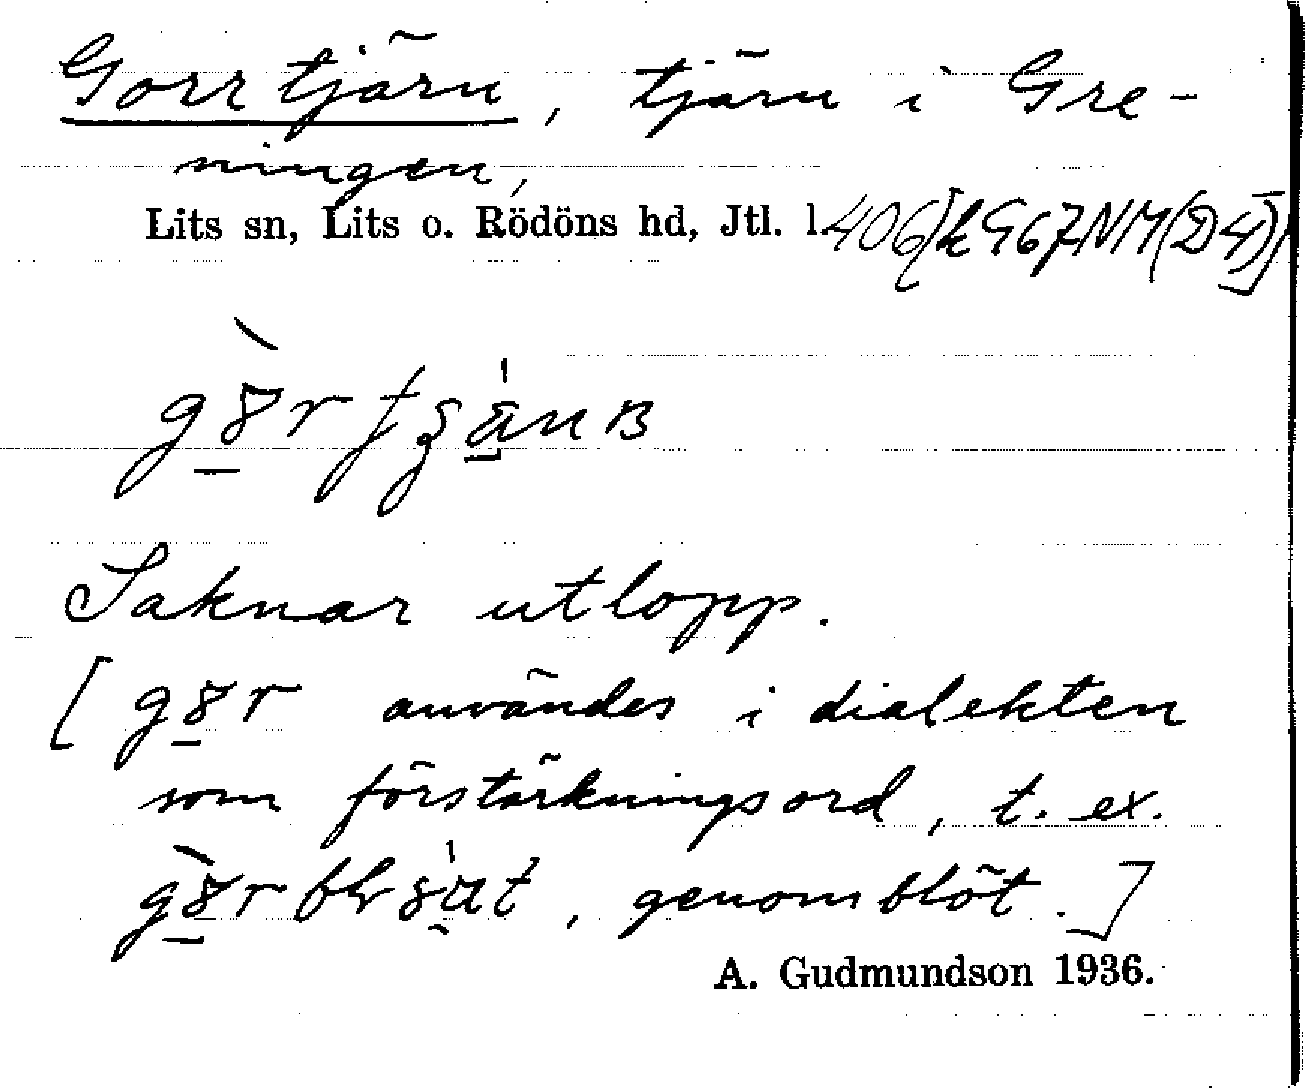 Gorrtjärn, tjärn i Gre-
ningen,
Lits sn, Lits o. Rödöns hd, Jtl. l.
Saknar utlopp.
[ användes i dialekten
som förstärkningsord, t. ex.
, genomblöt.]
A. Gudmundson 1936.